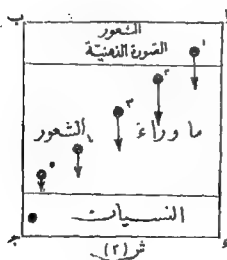 ا ب
الشعور
الصورة الذهنية
١
٢
٣
ما وراء الشعور
٤
٥
النسيات
ج
ش (٢)